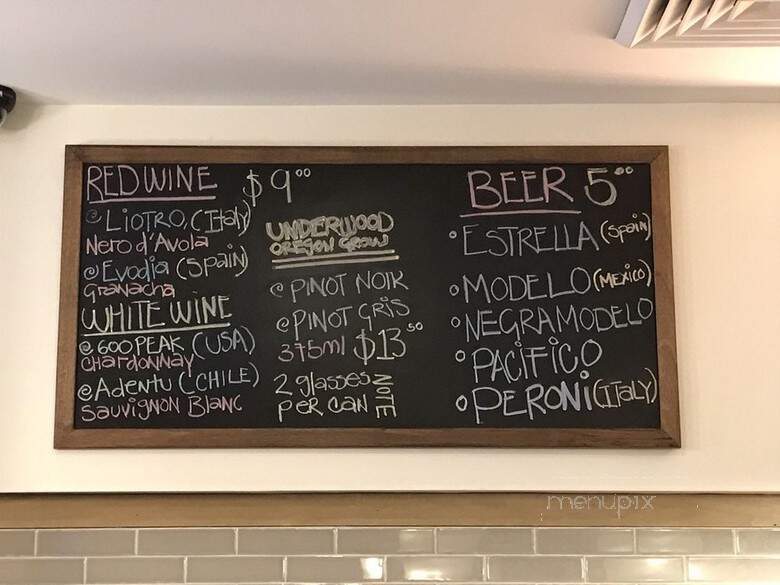 RED WINE $9.00
LIOTRO, (ITaly)
Nero d'Avola
Evodia (Spain)
GRaNacha
WHITE WINE
600 PEAK (USA)
CHaRdoNNay
Adentu (CHILE)
SauvigNoN BlaNC
UNDERWOOD
OREGON GROW
PINOT NOIR
PINOT GRIS
375ml $13.50
2 glasses
PER CaN
NOTE
BEER 5.00
ESTRELLA (Spain)
MODELO (MEXICO)
NEGRA MODELO
PACIFICO
PERONI (ITALY)
menupix